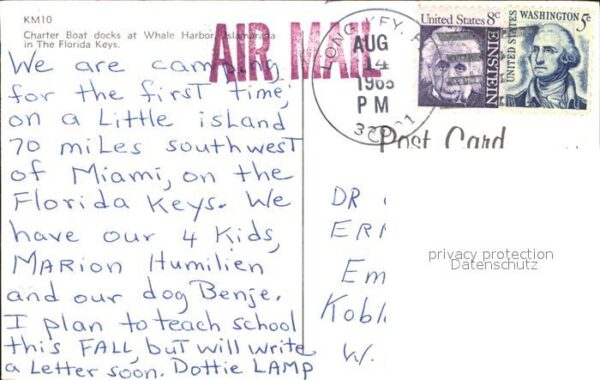 KM10
Charter Boat docks at Whale Harbor, Islamorada
in The Florida Keys.
AIR MAIL
We are camping
for the first time,
on a Little island
70 miles southwest
of Miami, on the
Florida Keys. We
have our 4 Kids,
MARION Humilien
and our dog Benje.
I plan to teach school
this FALL, but will write
a Letter soon. Dottie LAMP
LONG KEY,
AUG
14
PM
United States 8c
EINSTEIN
UNITED STATES
WASHINGTON 5c
Post Card
DR
ER
Em
Kobl
W.
privacy protection
Datenschutz